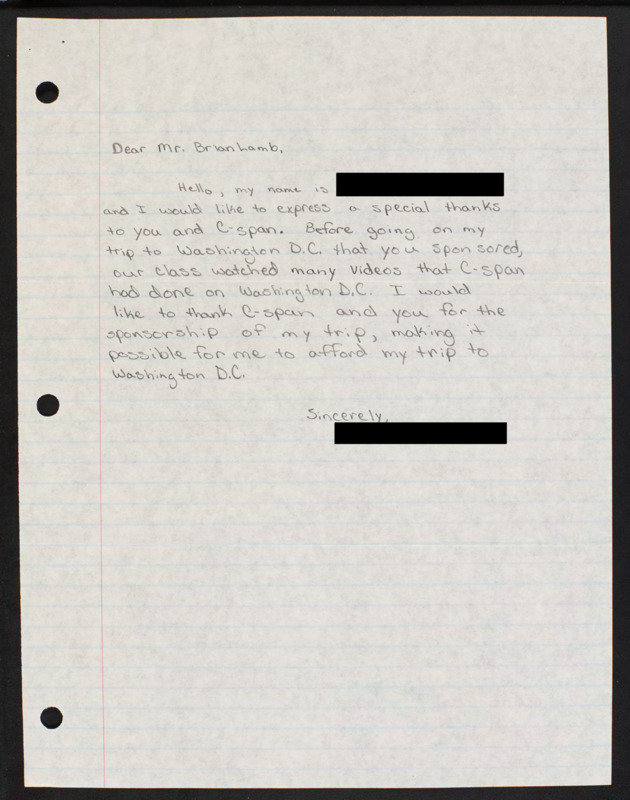 Dear Mr. Brian Lamb,
Hello, my name is
and I would like to express a special thanks
to you and C-span. Before going on my
trip to Washington D.C. that you sponsored,
our class watched many videos that C-span
had done on Washington D.C. I would
like to thank C-span and you for the
sponsorship of my trip, making it
possible for me to afford my trip to
Washington D.C.
Sincerely,